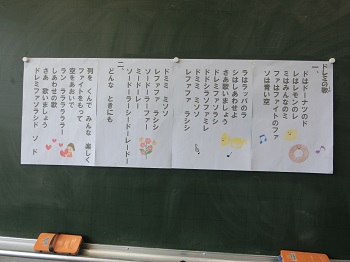 ドレミの歌
一、
ドはドーナツのド
レはレモンのレ
ミはみんなのミ
ファはファイトのファ
ソは青い空
ラはラッパのラ
シはしあわせよ
さあ歌いましょう
ドレミファソラシ
ドドシラソファミレ
ドミミ ミソソ
レファファ ラシシ
ドミミ ミソソ
レファファ ラシシ
ソードーラーファー
ミードーレー
ソードーラーシードーレードー
二、
どんな ときにも
列を くんで みんな 楽しく
ファイトをもって
空をあおいで
ラン ララララララー
しあわせの歌
さあ 歌いましょう
ドレミファソラシド ソ ド